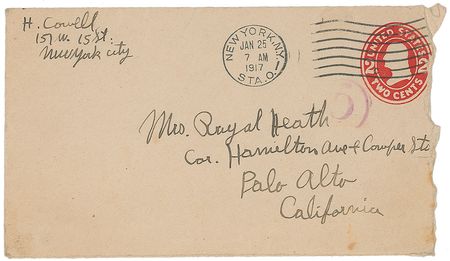 H. Cowell
157 W. 15 St.
New York City
NEW YORK, N.Y.
JAN 25
7 AM
1917
STA. O.
1
UNITED STATES
2 2
TWO CENTS
Mrs. Royal Heath
Cor. Hamilton Ave & Cowper Sts
Palo Alto
California